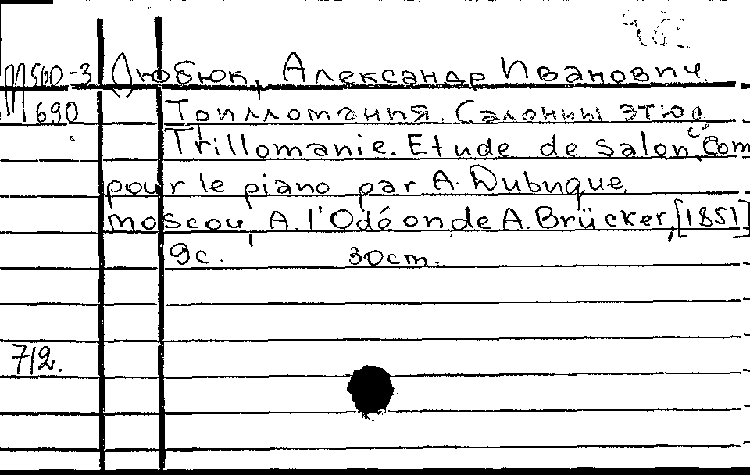 М 500-3 Дюбюк, Александр Иванович
М 690 Трилломания. Салонный этюд
Trillomanie. Etude de salon. Com
pour le piano par A. Dubuque.
Moscou, A. l'Odéon de A. Brücker, [1851]
9с. 30cm.
712.